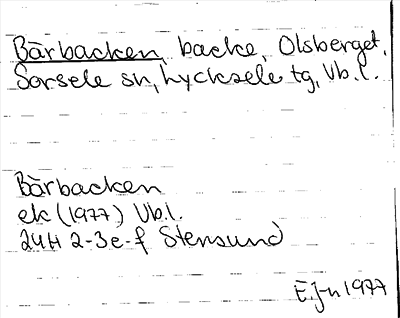 Bärbacken, backe, Olsberget,
Sorsele sn, Lycksele tg, Vb.l.
Bärbacken
ek (1977) Vb.l.
24H 2-3e-f Stensund
E.J-n 1977